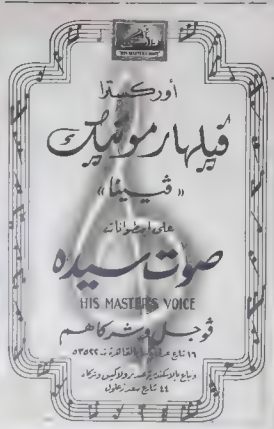 HIS MASTER'S VOICE
أوركسترا
ڤيلهارمونيك
« ڤيينا »
على اسطوانات
صوت سيده
HIS MASTER'S VOICE
ڤوجل وشركاهم
١٦ شارع بالقاهرة ت ٥٣٥٢٢
ويباع بالاسكندرية عند وشركاه
٤٤ شارع سعد زغلول